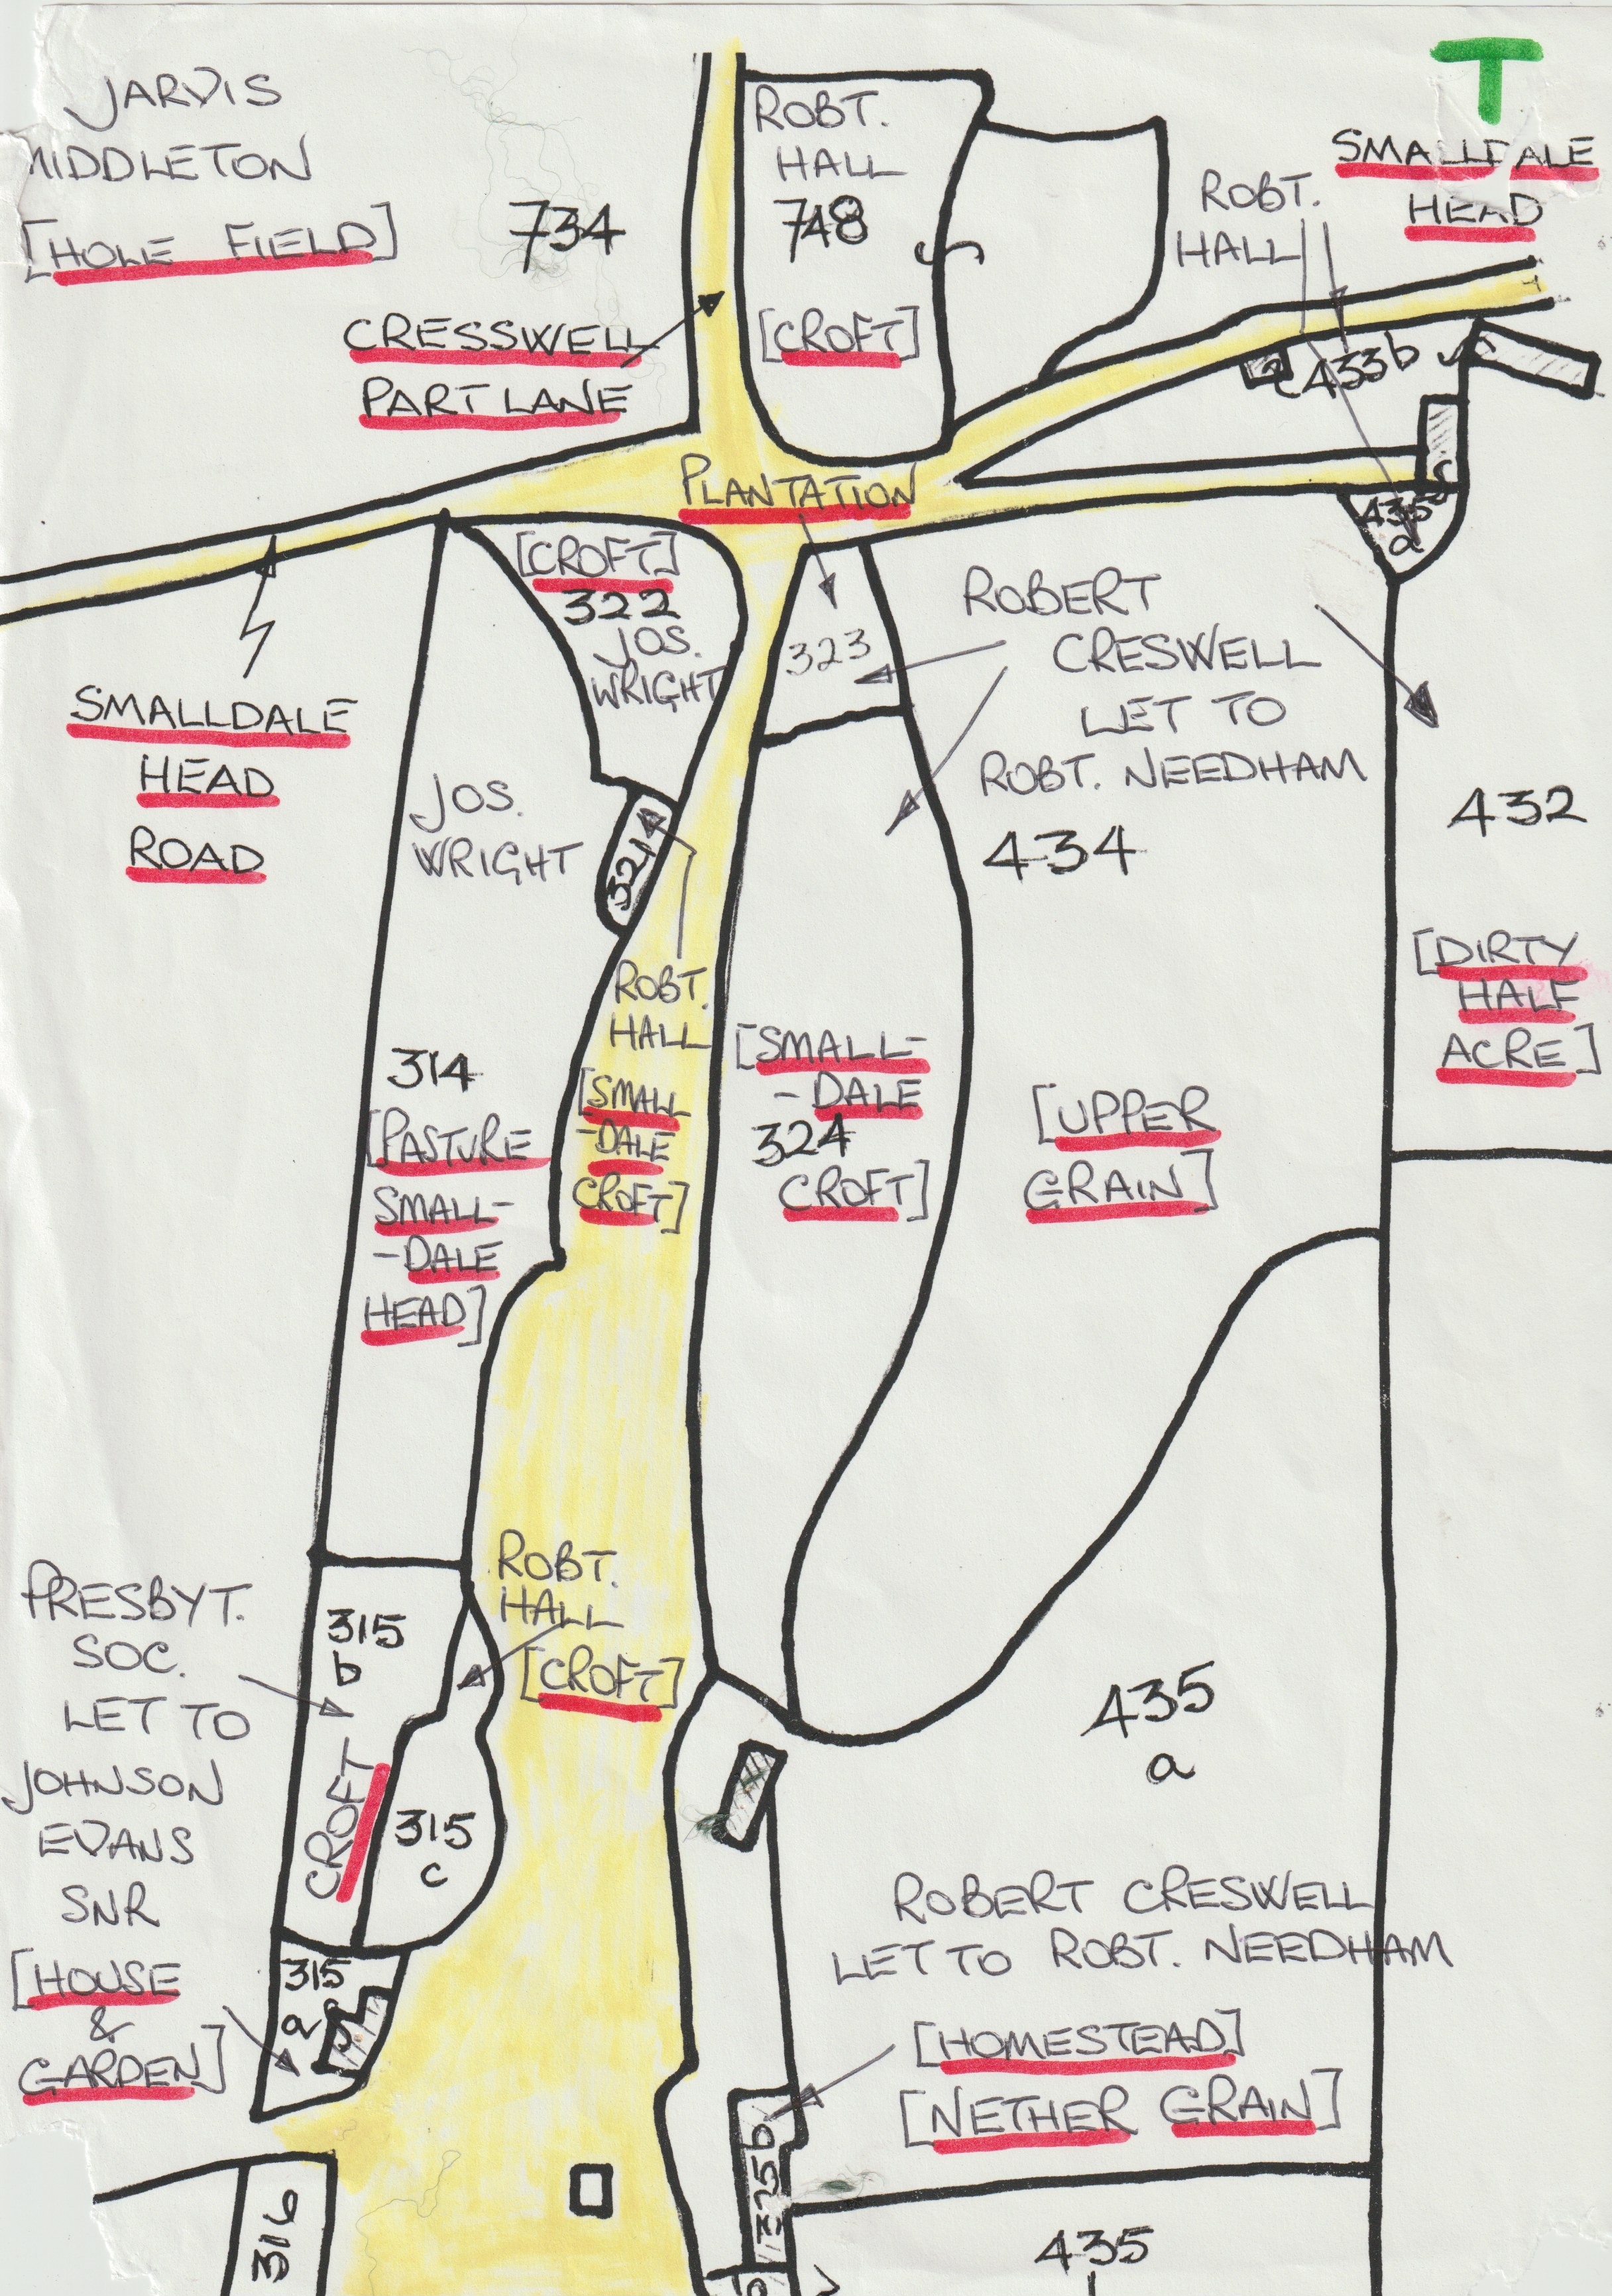 T
JARVIS
MIDDLETON
[HOLE FIELD]
734
CRESSWELL
PART LANE
ROBT.
HALL
748
[CROFT]
ROBT.
HALL
SMALLDALE
HEAD
433b
PLANTATION
[CROFT]
322
JOS.
WRIGHT
323
ROBERT
CRESWELL
LET TO
ROBT. NEEDHAM
434
432
SMALLDALE
HEAD
ROAD
JOS.
WRIGHT
321
ROBT.
HALL
[SMALL
-DALE
CROFT]
[SMALL-
-DALE
324
CROFT]
[DIRTY
HALF
ACRE]
314
[PASTURE
SMALL-
-DALE
HEAD]
[UPPER
GRAIN]
ROBT.
HALL
[CROFT]
PRESBYT.
SOC.
LET TO
JOHNSON
EVANS
SNR
[HOUSE
&
GARDEN]
315
b
CROFT
315
c
315
a
435
a
ROBERT CRESWELL
LET TO ROBT. NEEDHAM
[HOMESTEAD]
[NETHER GRAIN]
325b
316
435